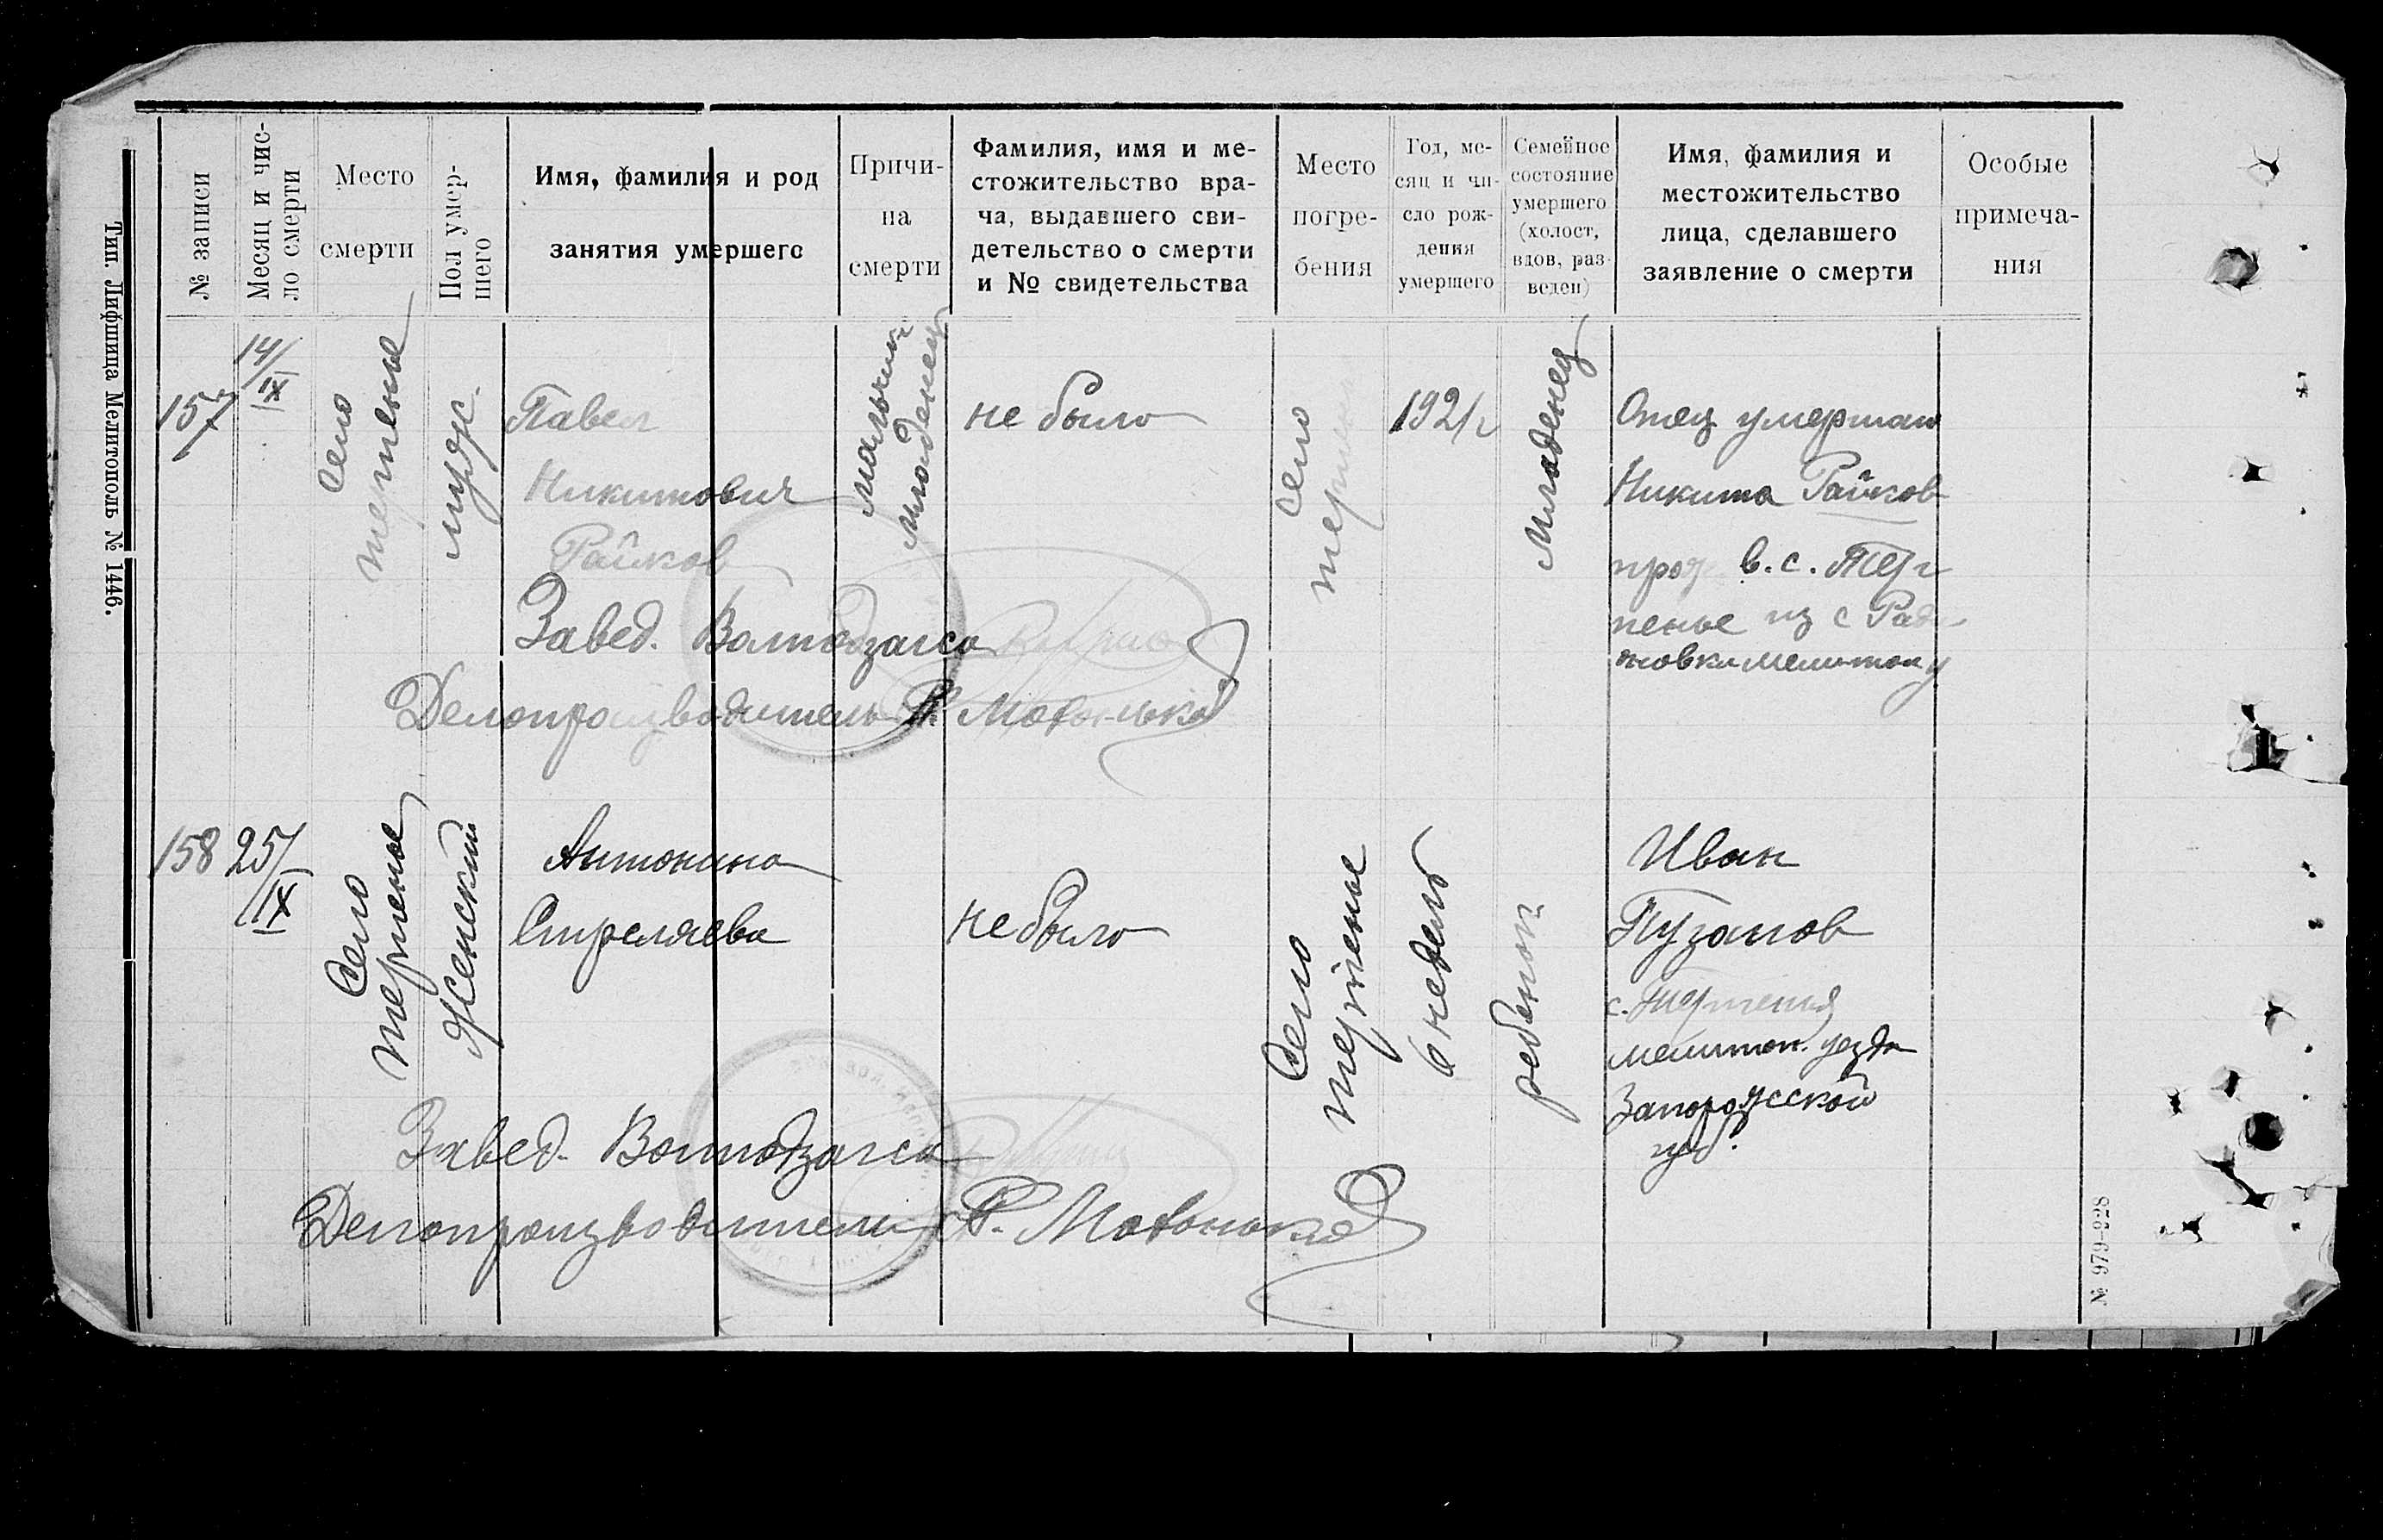 Тип. Лифшица Мелитополь № 1446.
№ записи
Месяц и чис-
ло смерти
Место
смерти
Пол умер-
шего
Имя, фамилия и род
занятия умершего
Причи-
на
смерти
Фамилия, имя и ме-
стожительство вра-
ча, выдавшего сви-
детельство о смерти
и № свидетельства
Место
погре-
бения
Год, ме-
сяц и чи-
сло рож-
дения
умершего
Семейное
состояние
умершего
(холост,
вдов, раз-
веден)
Имя, фамилия и
местожительство
лица, сделавшего
заявление о смерти
Особые
примеча-
ния
157
14/IX
Село
терпенье
мужс.
Павел
Никитович
Райков
младенец
не было
Село
терпенье
1921 г
младенец
Отец умершаго
Никита Райков
в. с. Тер
пенье из с
Завед.
Делопроизводитель
158
25/IX
Село
терпенье
женский
Антонина
Стреляева
не было
Село
терпенье
6 недель
ребенок
Иван
Пузанов
с. Терпенья
мелитоп. уезда
Запорожской
губ.
Завед.
Делопроизводитель
№ 979-928